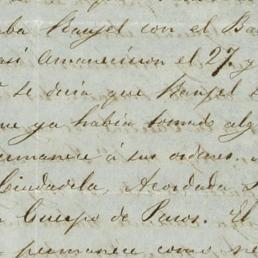 aba Rangel con el Ba
así amanecieron el 27. y
se decia que Rangel s
ue ya habia tomado alg
ermanece á sus ordenes.
Ciudadela, Acordada
Cuerpo de Paros. El
permanece como ne